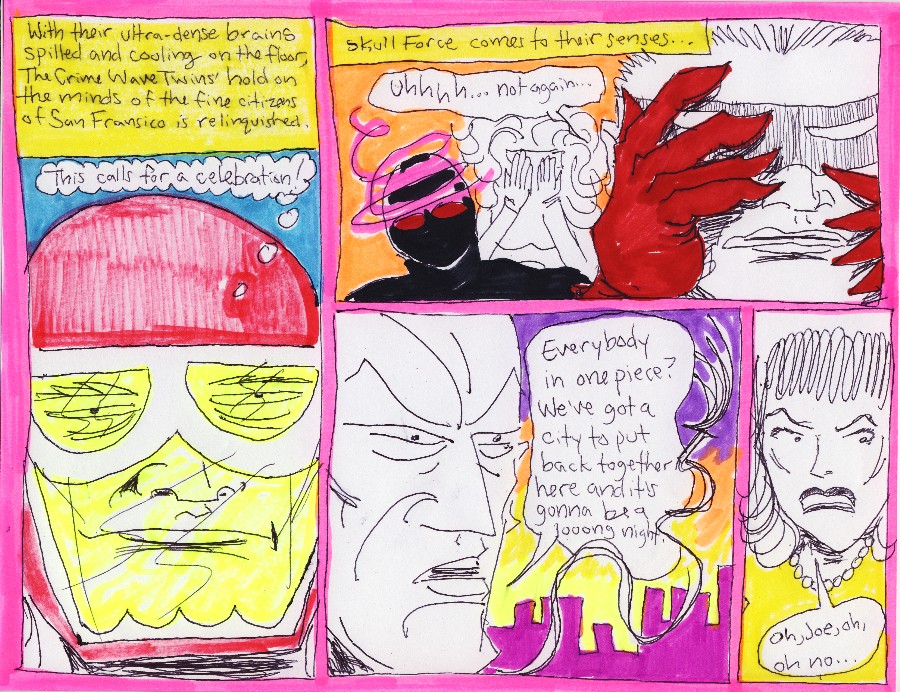 With their ultra-dense brains
spilled and cooling on the floor,
The Crime Wave Twins' hold on
the minds of the fine citizens
of San Fransico is relinquished.
This calls for a celebration!
Skull Force comes to their senses...
Uhhhh... not again...
Everybody
in one piece?
We've got a
city to put
back together
here and it's
gonna be a
looong night
Oh, Joe, oh,
oh no...